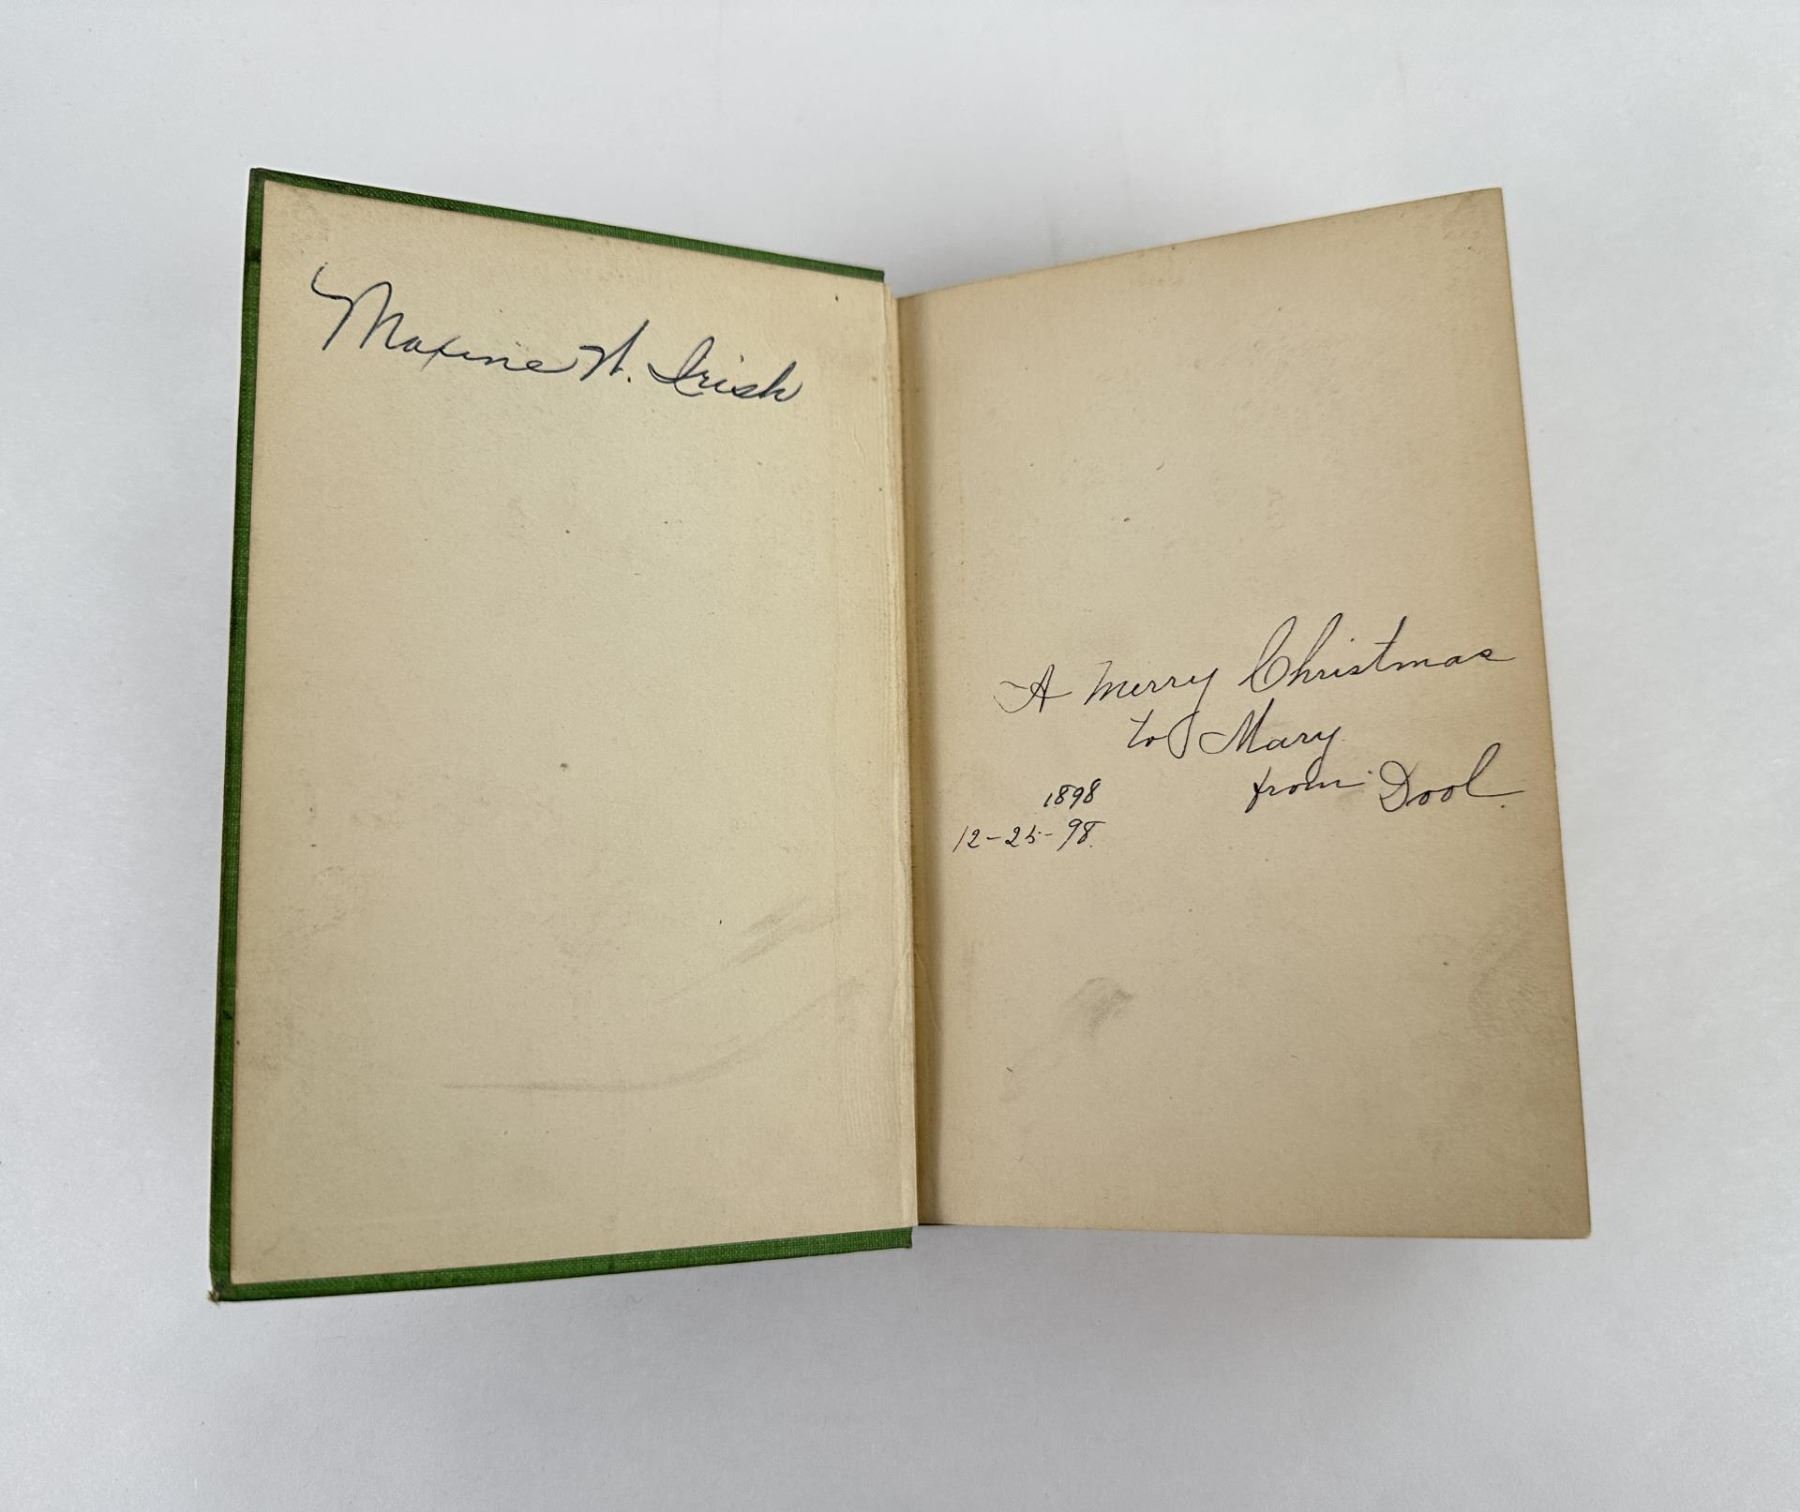 Maxine W. Irish
A Merry Christmas
to Mary
from Dool.
1898
12-25-98.